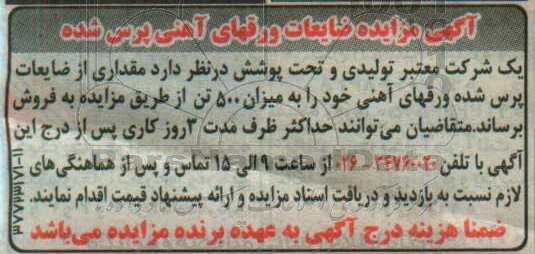 آگهی مزایده ضایعات ورقهای آهنی پرس شده
یک شرکت معتبر تولیدی و تحت پوشش درنظر دارد مقداری از ضایعات
پرس شده ورقهای آهنی خود را به میزان ۵۰۰ تن از طریق مزایده به فروش
برساند.متقاضیان می‌توانند حداکثر ظرف مدت ۳روز کاری پس از درج این
آگهی با تلفن ۳۴۷۶۰۰۲۰-۰۲۶ از ساعت ۹ الی ۱۵ تماس و پس از هماهنگی‌های
لازم نسبت به بازدید و دریافت اسناد مزایده و ارائه پیشنهاد قیمت اقدام نمایند.
ضمنا هزینه درج آگهی به عهده برنده مزایده می‌باشد